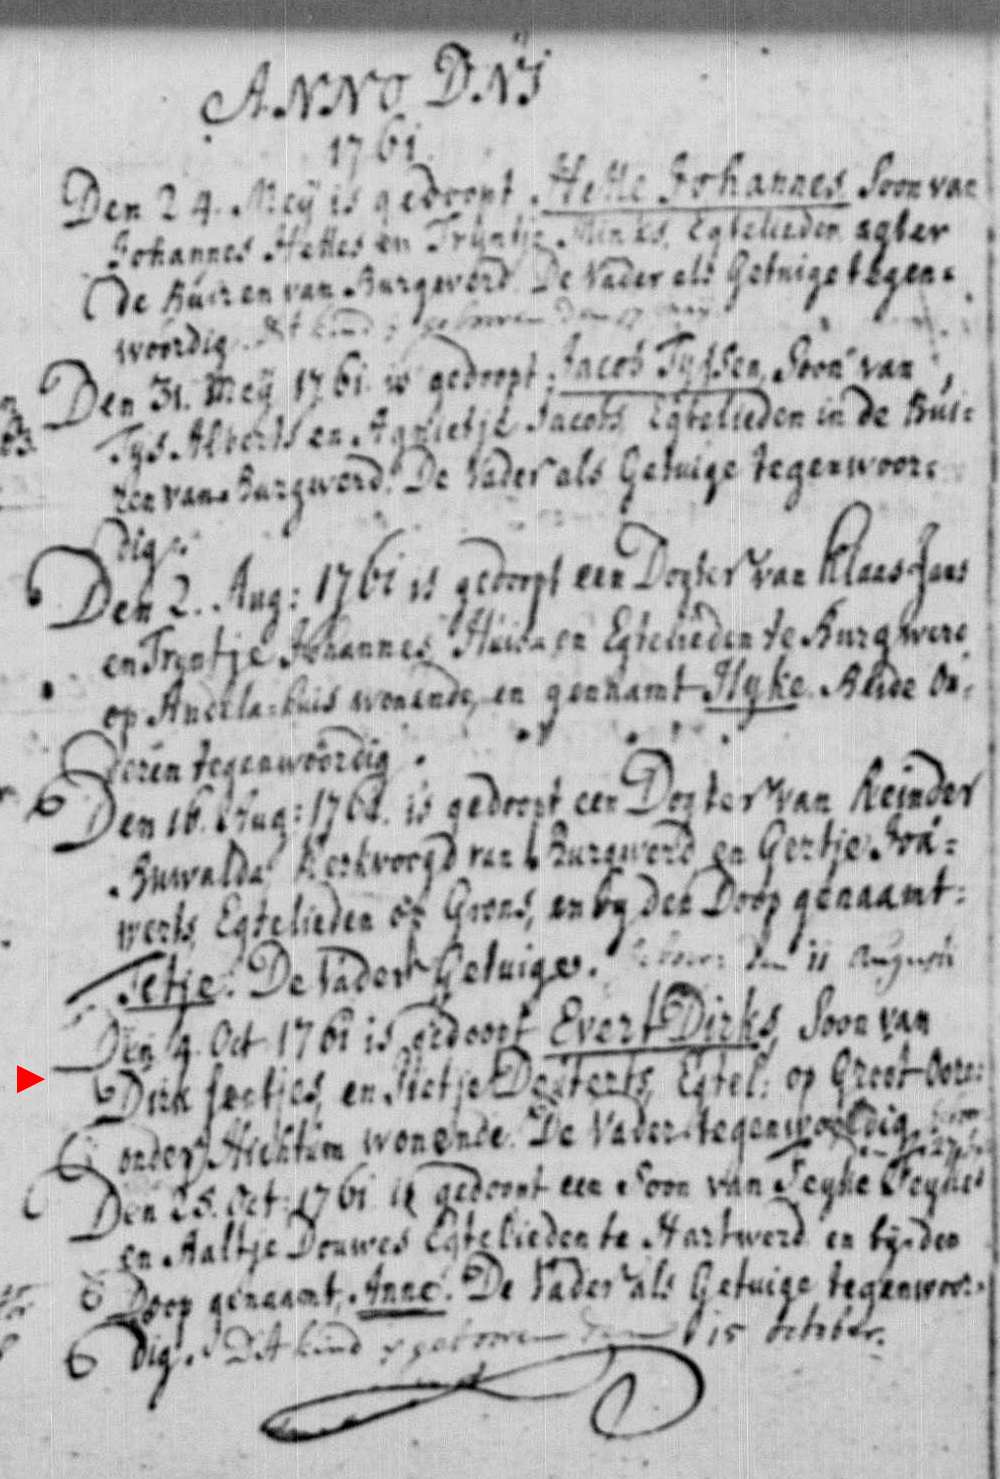 ANNO DNI
1761.
Den 24. Meÿ is gedoopt Hette Johannes Soon van
Johannes Hettes en Tryntje Minks, Egtelieden agter
de Huizen van Burgwerd. De Vader als Getuige tegen=
woordig. dit kind is geboren den 17 meÿ
Den 31. Meÿ 1761. is gedoopt Jacob Tyssen, Soon van
Tys Alberts en Agnietje Jacobs, Egtelieden in de Hui=
zen van Burgwerd. De Vader als Getuige tegenwoor=
dig.
Den 2. Aug: 1761 is gedoopt een Dogter van Klaas Jans
en Tryntje Johannes, Egtelieden te Burgwerd
op wonende, en genaamt Ilyke. Beide Ou=
deren tegenwoordig.
Den 16. Aug: 1761. is gedoopt een Dogter van Reinder
Buwalda Kerkvoogd van Burgwerd en Gertje
Egtelieden op Grons, en by den Doop genaamt=
Tetje. De Vader Getuige. geboren den 11 Augusti
Den 4. Oct 1761 is gedoopt Evert Dirks, Soon van
Dirk en Egtel: op Groot
onder Hichtum wonende. De Vader tegenwoordig.
Den 25. Oct: 1761 is gedoopt een Soon van Feyke Feykes
en Aaltje Douwes Egtelieden te Hartwerd en by den
Doop genaamt, Anne. De Vader als Getuige tegenwoor=
dig. Dit kind is geboren den 15 October.